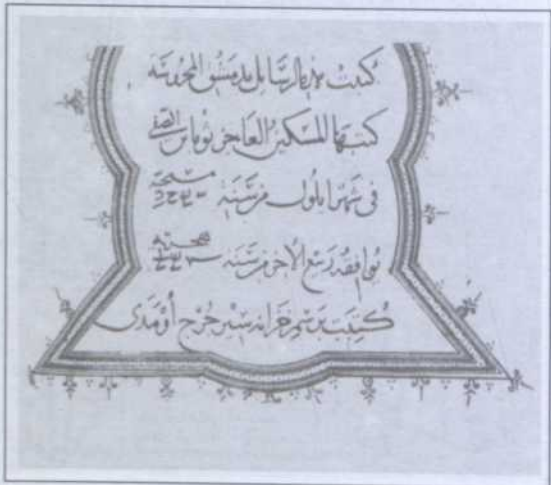 كتبت هذه الرسايل بدمشق المحروسة
كتبها المسكين العاجز توماس الصفي
في شهر ايلول من سنة مسيحية
توافقه ربيع الاخر من سنة هجرية
كتبت برسم خزانة سير جرج اومدى